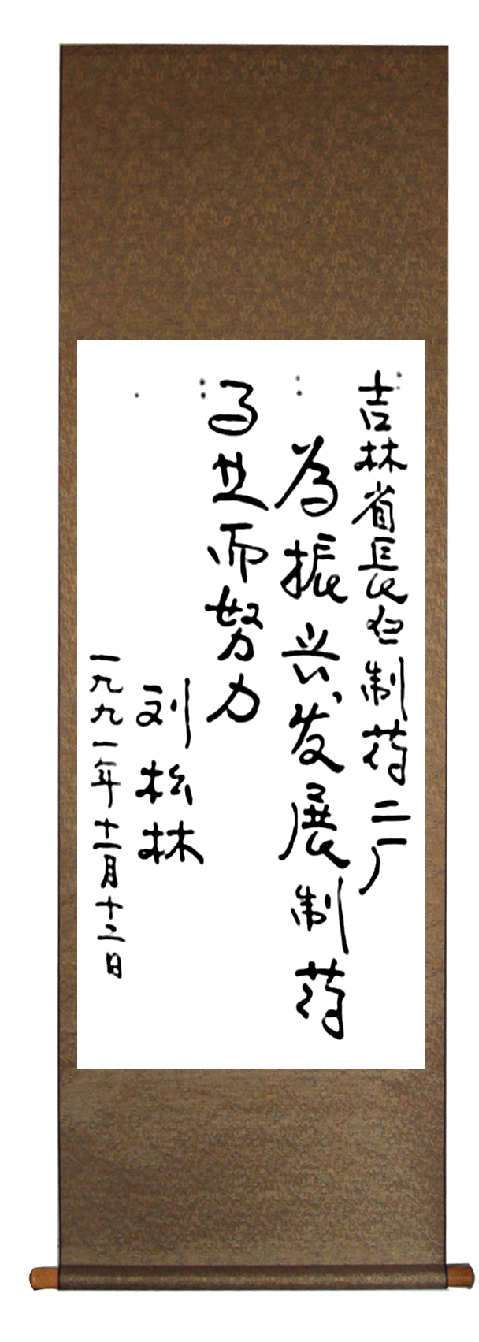 吉林省長白制药二厂
為振兴发展制药
事业而努力
刘松林
一九九一年十一月十二日